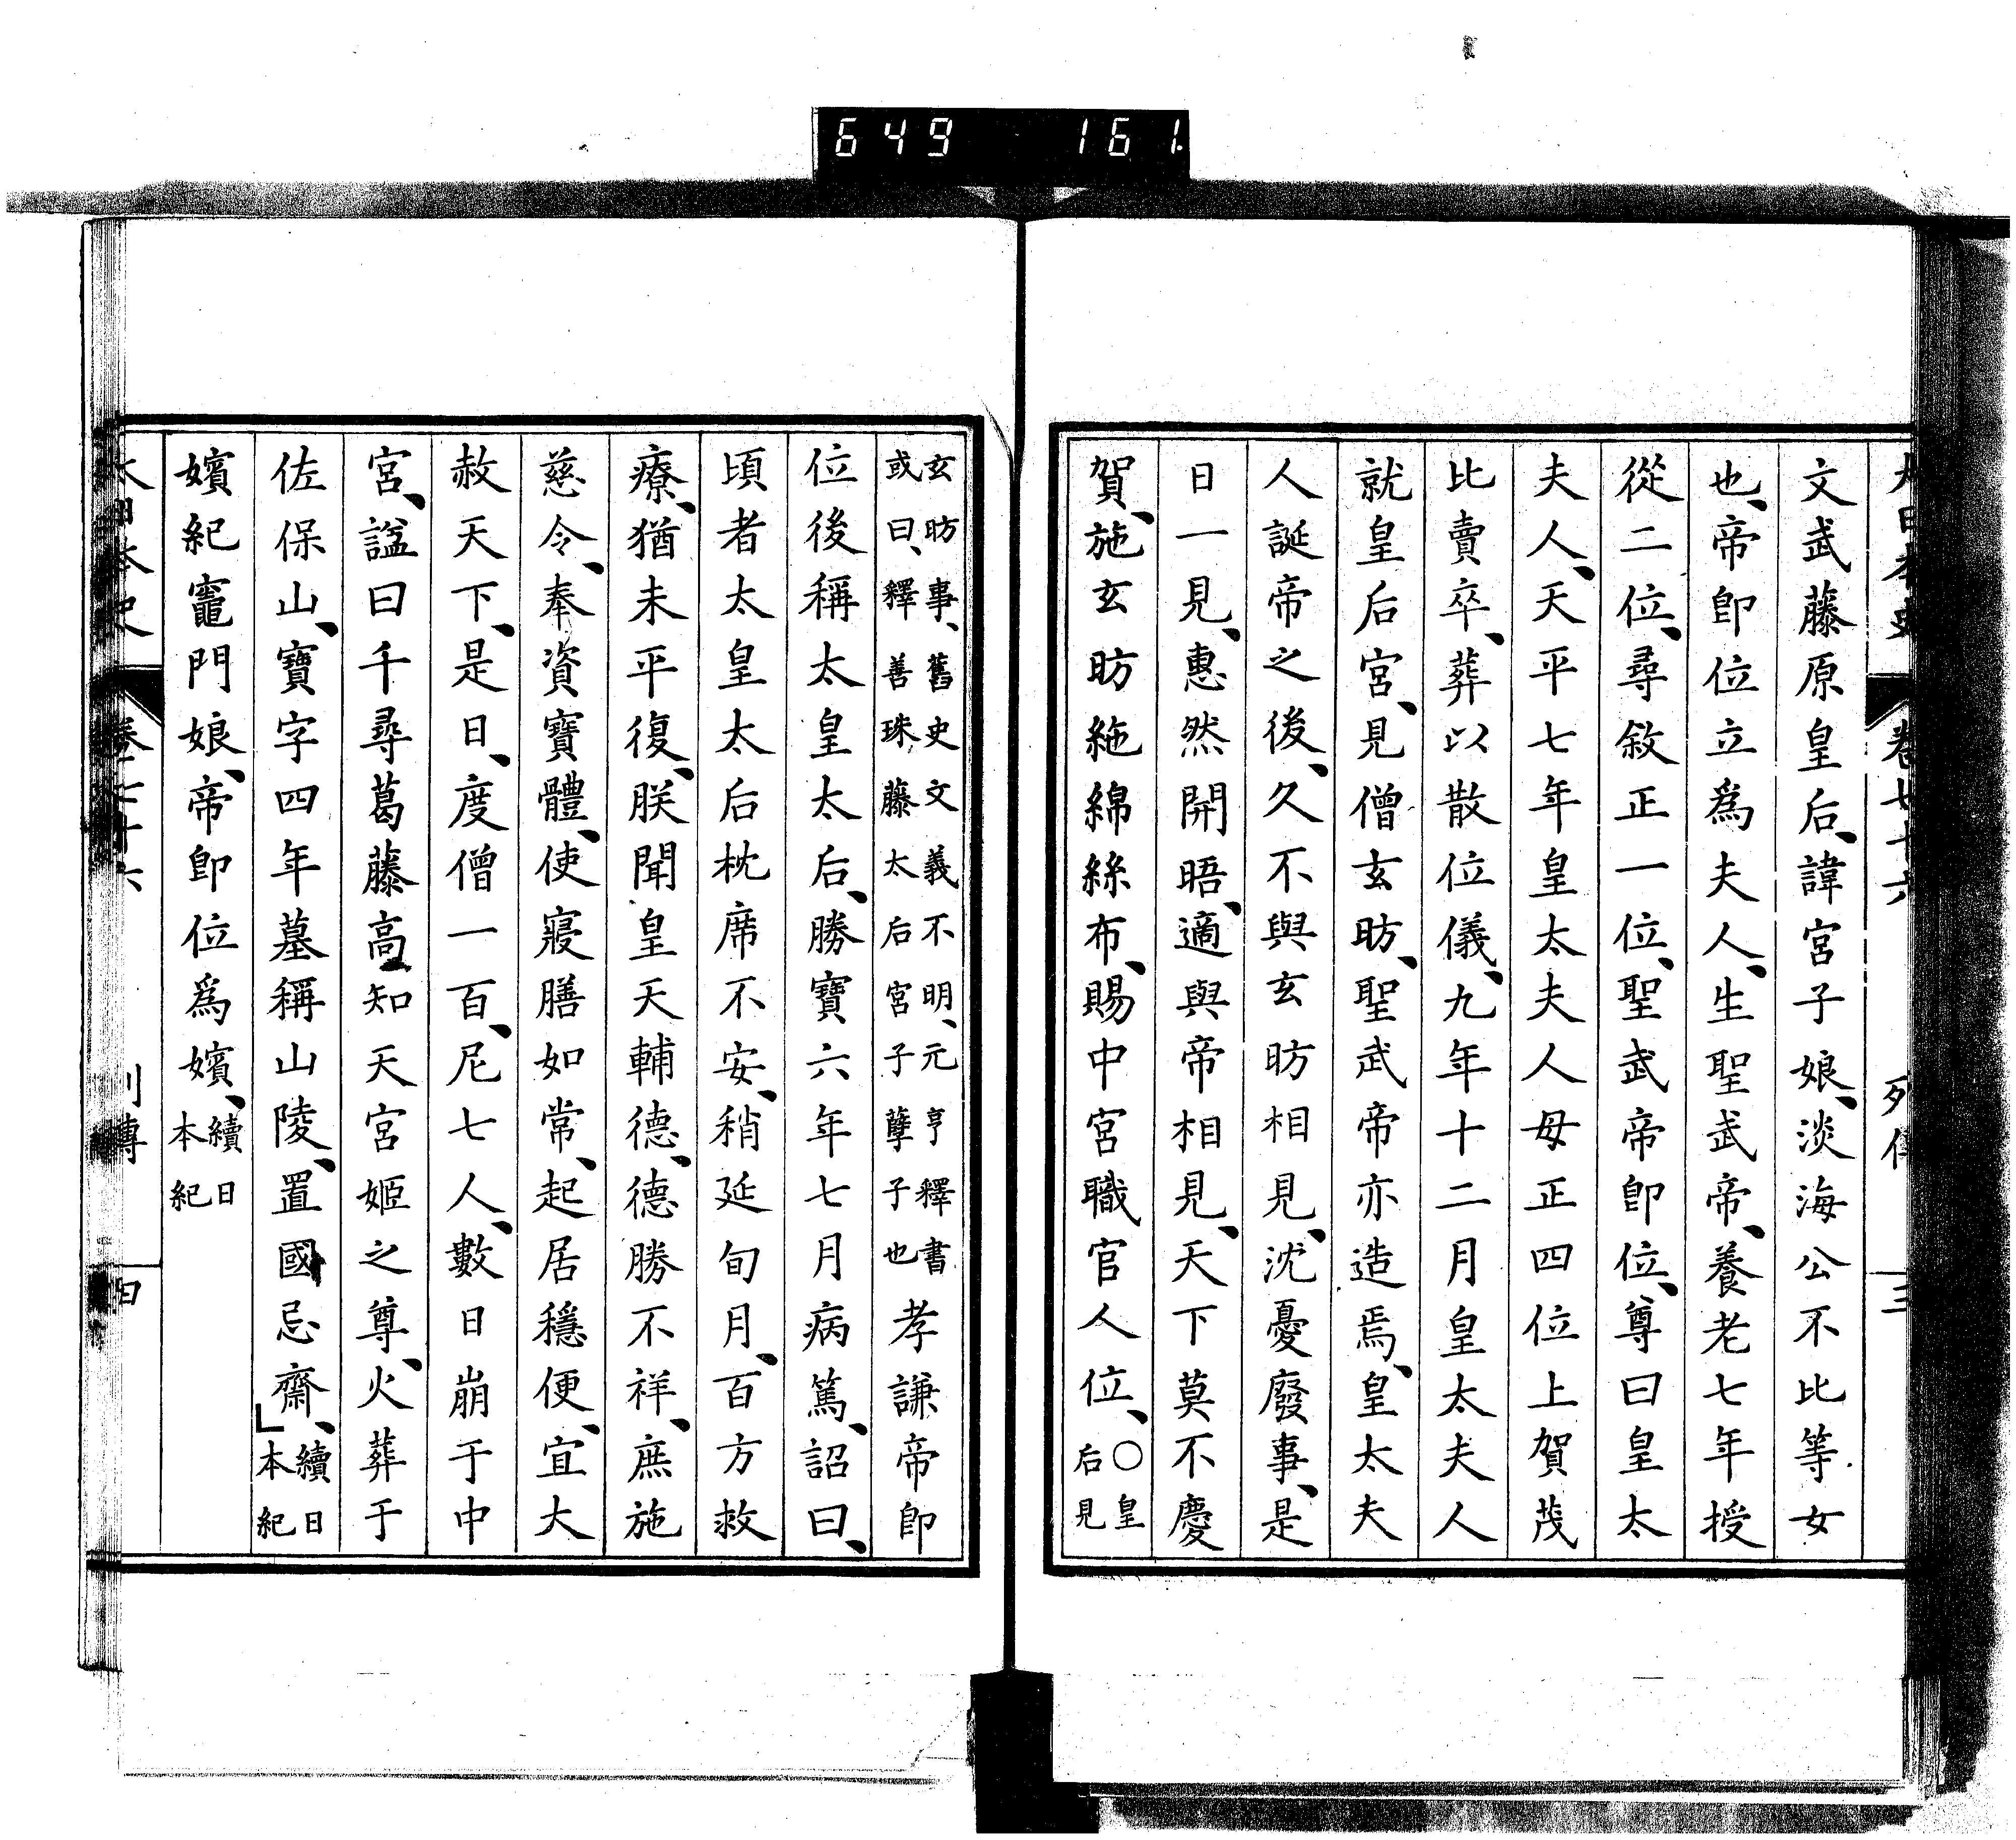 649 161.
大日本史 卷七十六 列傳 三
文武藤原皇后、諱宮子娘、淡海公不比等女
也、帝卽位立爲夫人、生聖武帝、養老七年授
從二位、尋敘正一位、聖武帝卽位、尊曰皇太
夫人、天平七年皇太夫人母正四位上賀茂
比賣卒、葬以散位儀、九年十二月皇太夫人
就皇后宮、見僧玄昉、聖武帝亦造焉、皇太夫
人誕帝之後、久不與玄昉相見、沈憂廢事、是
日一見、惠然開晤、適與帝相見、天下莫不慶
賀、施玄昉絁綿絲布、賜中宮職官人位、○皇
后見
玄昉事、舊史文義不明、元亨釋書
或曰、釋善珠藤太后宮子孽子也孝謙帝卽
位後稱太皇太后、勝寶六年七月病篤、詔曰、
頃者太皇太后枕席不安、稍延旬月、百方救
療、猶未平復、朕聞皇天輔德、德勝不祥、庶施
慈令、奉資寶體、使寢膳如常、起居穩便、宜大
赦天下、是日、度僧一百、尼七人、數日崩于中
宮、謚曰千尋葛藤高知天宮姬之尊、火葬于
佐保山、寶字四年墓稱山陵、置國忌齋、續日
本紀
嬪紀竈門娘、帝卽位爲嬪、續日
本紀
大日本史 卷七十六 列傳 四